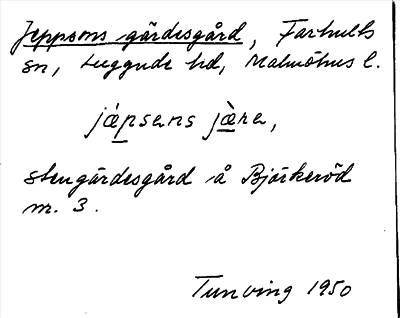 Jeppsons gärdesgård, Farhults
sn, Luggude hd, Malmöhus l.
jápsens jæ̀re,
stengärdesgård å Bjärkeröd
nr. 3.
Tunving 1950